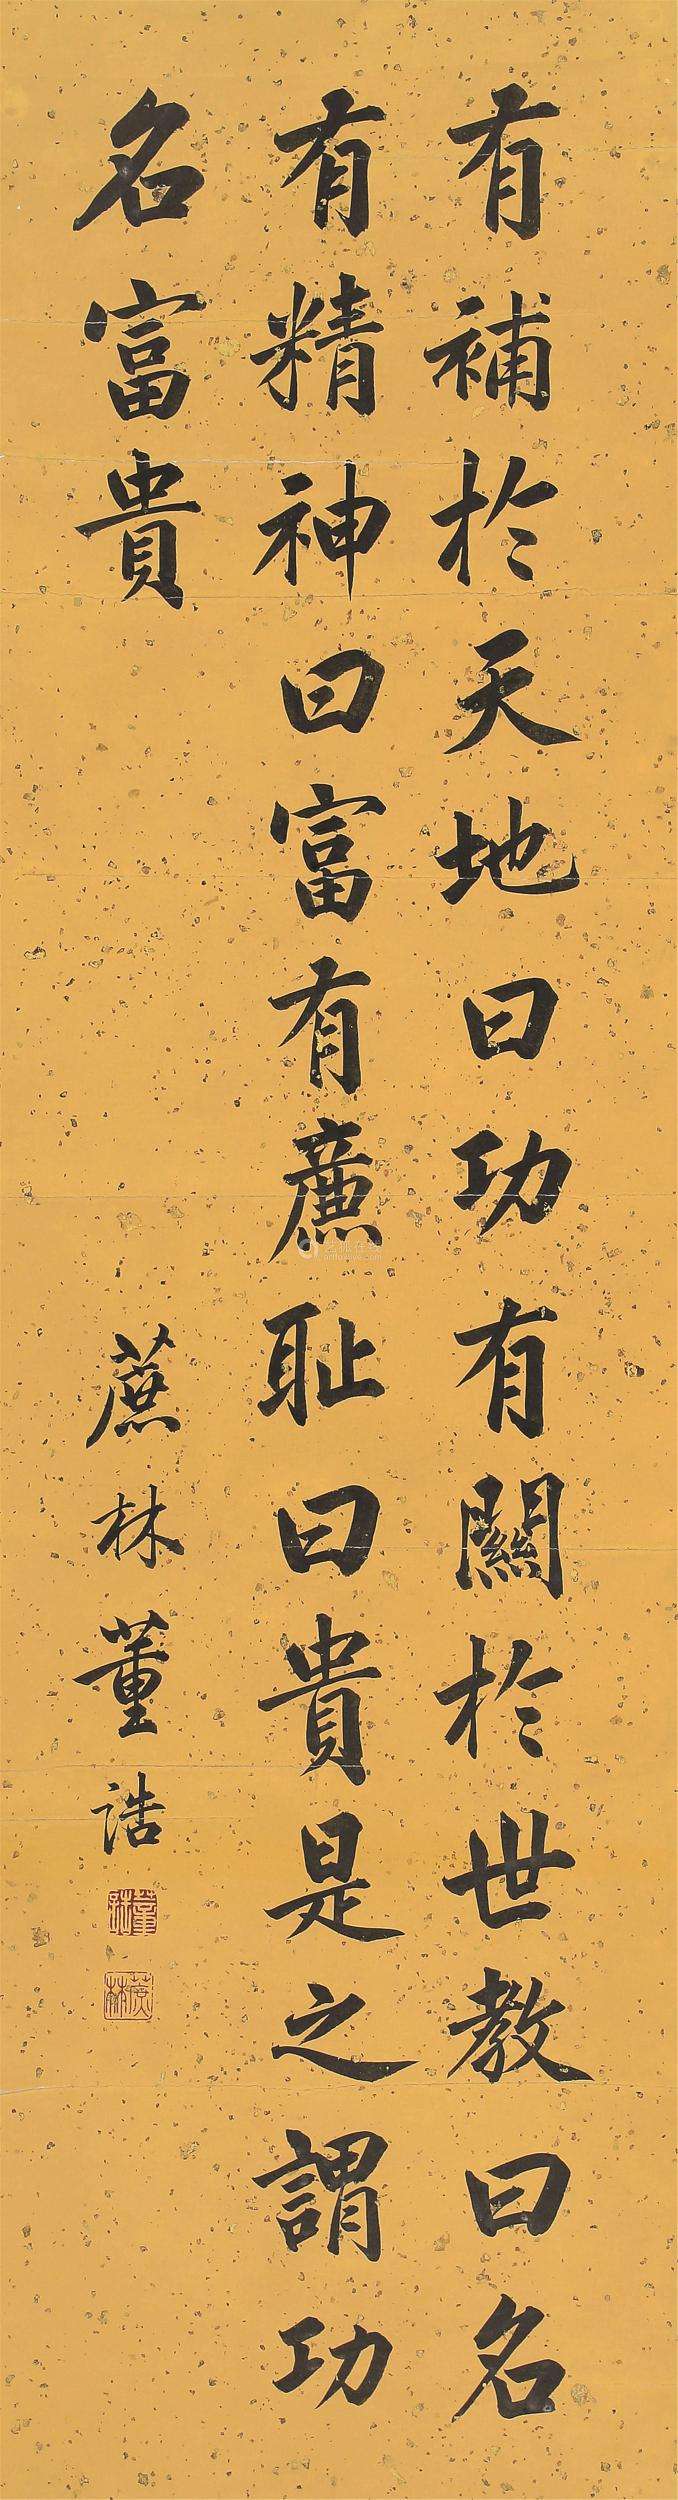 有補於天地曰功有關於世教曰名
有精神曰富有亷耻曰貴是之謂功
名富貴
蔗林董誥